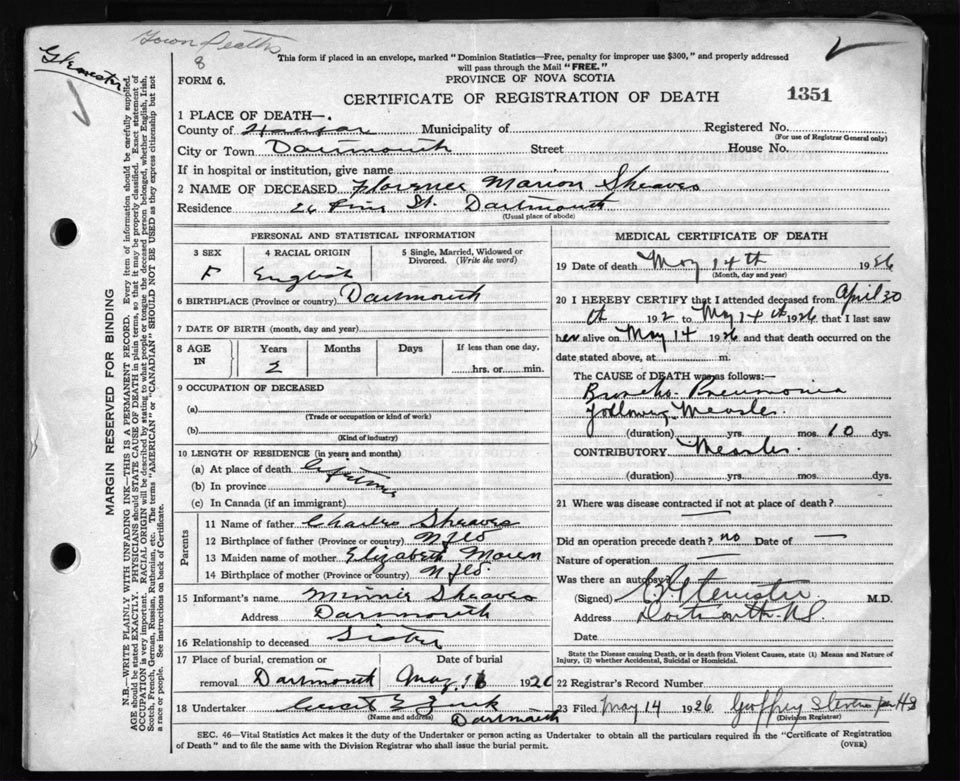 Town Deaths
8
This form if placed in an envelope, marked "Dominion Statistics—Free, penalty for improper use $300," and properly addressed
will pass through the Mail "FREE."
FORM 6.
PROVINCE OF NOVA SCOTIA
CERTIFICATE OF REGISTRATION OF DEATH
1351
1 PLACE OF DEATH—
County of Halifax Municipality of Registered No.
(For use of Registrar General only)
City or Town Dartmouth Street House No.
If in hospital or institution, give name
2 NAME OF DECEASED Florence Marion Sheaves
Residence 26 Pine St. Dartmouth
(Usual place of abode)
PERSONAL AND STATISTICAL INFORMATION
3 SEX 4 RACIAL ORIGIN 5 Single, Married, Widowed or
Divorced. (Write the word)
F English
6 BIRTHPLACE (Province or country) Dartmouth
7 DATE OF BIRTH (month, day and year)
8 AGE Years Months Days If less than one day,
IN 2 hrs. or min.
9 OCCUPATION OF DECEASED
(a)
(Trade or occupation or kind of work)
(b)
(Kind of industry)
10 LENGTH OF RESIDENCE (in years and months)
(a) At place of death Lifetime
(b) In province
(c) In Canada (if an immigrant)
Parents
11 Name of father Charles Sheaves
12 Birthplace of father (Province or country) Nfld
13 Maiden name of mother Elizabeth
14 Birthplace of mother (Province or country) Nfld.
15 Informant's name Minnie Sheaves
Address Dartmouth
16 Relationship to deceased Sister
17 Place of burial, cremation or Date of burial
removal Dartmouth May 16 1926
18 Undertaker Zink
(Name and address) Dartmouth
MEDICAL CERTIFICATE OF DEATH
19 Date of death May 14th 1926
(Month, day and year)
20 I HEREBY CERTIFY that I attended deceased from April 30
th 192 to May 14th 1926 that I last saw
her alive on May 14 1926 and that death occurred on the
date stated above, at m.
The CAUSE of DEATH was as follows:—
Broncho Pneumonia
following Measles.
(duration) yrs. mos. 10 dys.
CONTRIBUTORY Measles
(duration) yrs. mos. dys.
21 Where was disease contracted if not at place of death?
Did an operation precede death? no Date of —
Nature of operation —
Was there an autopsy?
(Signed) M.D.
Address Dartmouth N.S.
Date
State the Disease causing Death, or in death from Violent Causes, state (1) Means and Nature of
Injury, (2) whether Accidental, Suicidal or Homicidal.
22 Registrar's Record Number
23 Filed May 14 1926 Geoffrey Stevens per HS
(Division Registrar)
SEC. 46—Vital Statistics Act makes it the duty of the Undertaker or person acting as Undertaker to obtain all the particulars required in the "Certificate of Registration
of Death" and to file the same with the Division Registrar who shall issue the burial permit.
(OVER)
MARGIN RESERVED FOR BINDING
N.B.—WRITE PLAINLY WITH UNFADING INK—THIS IS A PERMANENT RECORD. Every item of information should be carefully supplied.
AGE should be stated EXACTLY. PHYSICIANS should STATE CAUSE OF DEATH in plain terms, so that it may be properly classified. Exact statement of
OCCUPATION is very important. RACIAL ORIGIN will be described by stating to what people or tongue the deceased person belonged, whether English, Irish,
Scotch, French, German, Russian, Ruthenian, etc. The terms "AMERICAN" or "CANADIAN" SHOULD NOT BE USED as they express citizenship but not
a race or people. See instructions on back of Certificate.